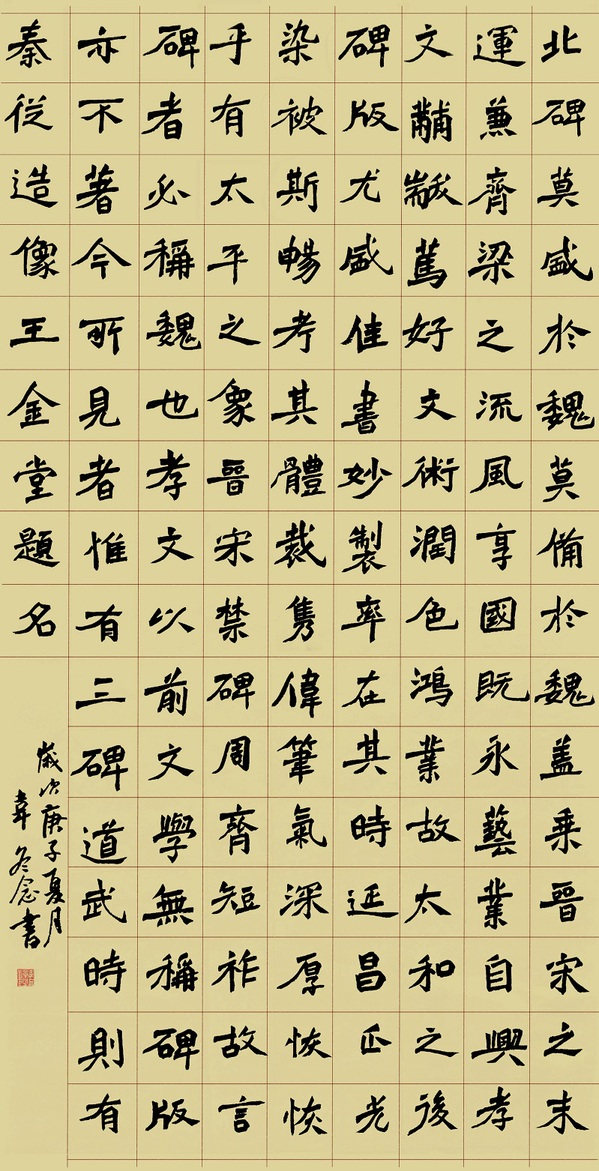 北碑莫盛於魏莫備於魏蓋乘晉宋之末
運兼齊梁之流風享國既永藝業自興孝
文黼黻篤好文術潤色鴻業故太和之後
碑版尤盛佳書妙製率在其時延昌正光
染被斯暢考其體裁隽偉筆氣深厚恢恢
乎有太平之象晉宋禁碑周齊短祚故言
碑者必稱魏也孝文以前文學無稱碑版
亦不著今所見者惟有三碑道武時則有
秦從造像王金堂題名
歲次庚子夏月
韋冬念書